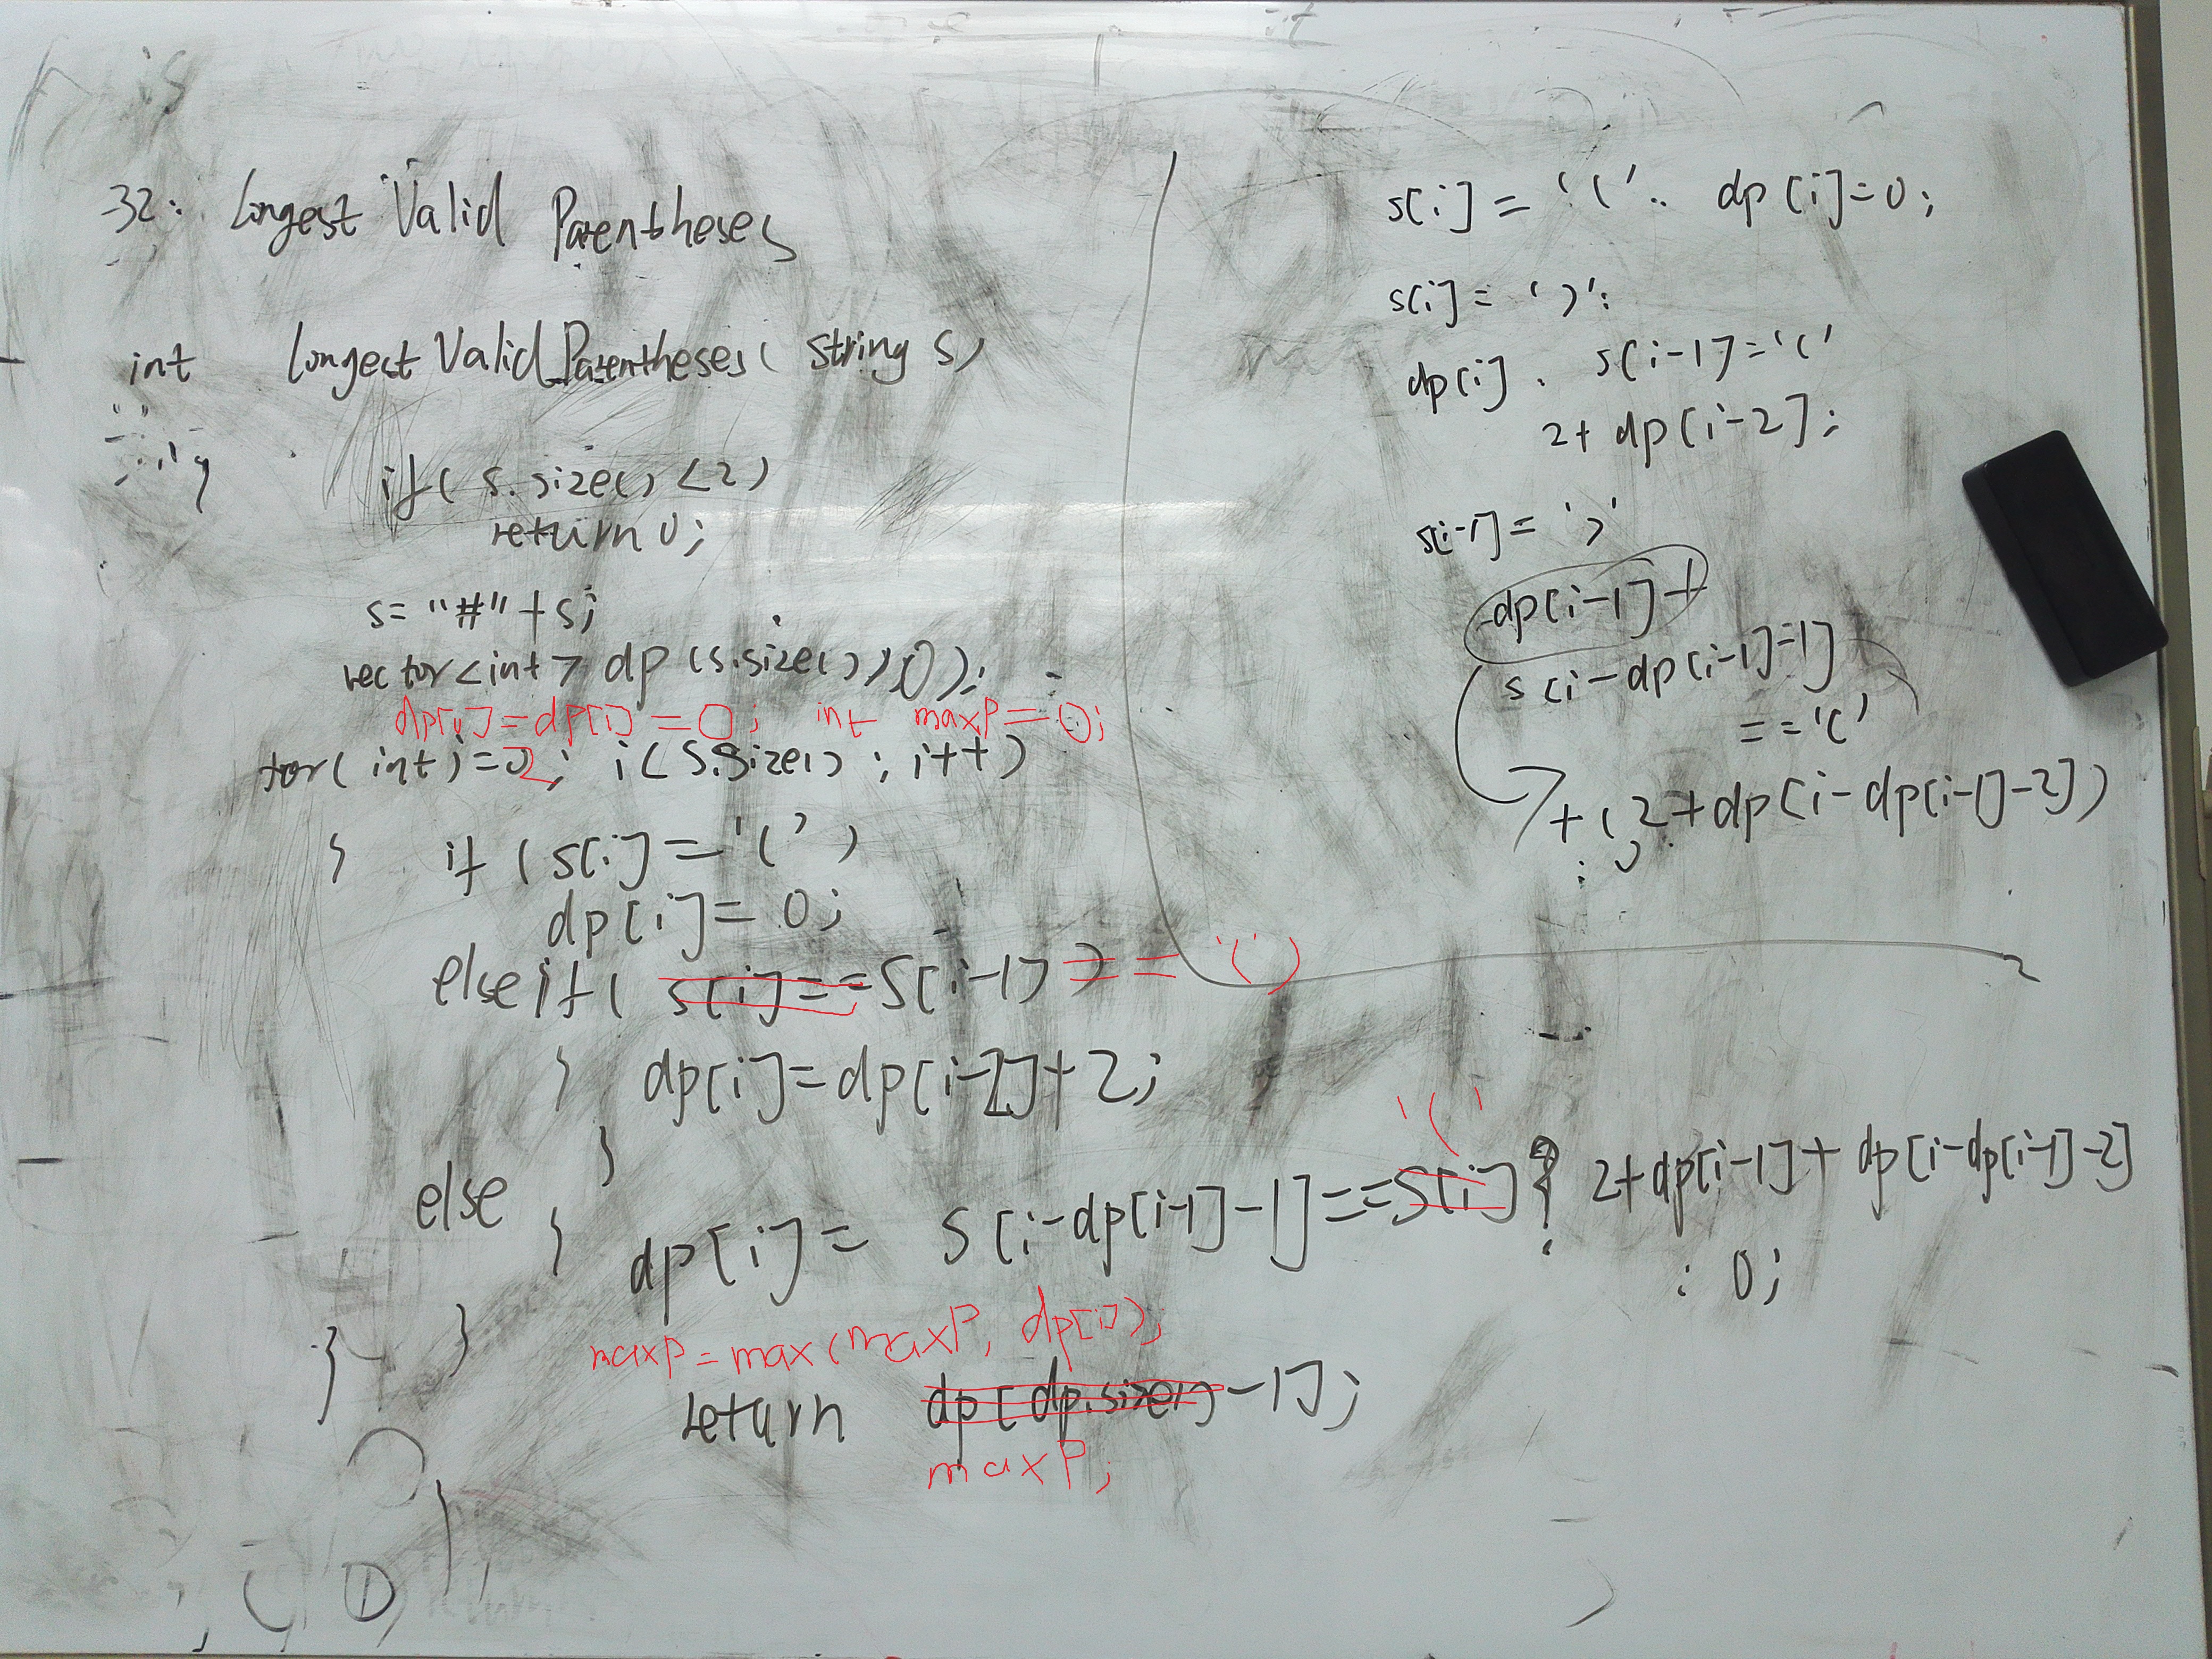 32: Longest Valid Parentheses
int Longest Valid Parentheses( string s)
if( s.size() <2)
return 0;
s= "#" + s;
vector<int> dp (s.size(),0);
dp[0]=dp[1]=0; int maxP=0;
for( int i=2; i<s.size(); i++)
{ if (s[i]=='(')
dp[i]= 0;
else if( s[i]==S[i-1] =='(')
{ dp[i]=dp[i-2]+2;
}
else { dp[i]= S[i-dp[i-1]-1]==S[i] '(' ? 2+dp[i-1]+dp[i-dp[i-1]-2]
: 0;
} }
maxP=max(maxP, dp[i]);
return dp[dp.size()-1];
maxP;
s[i]= '(': dp[i]=0;
s[i]= ')':
dp[i]. s[i-1]='('
2+ dp[i-2];
s[i-1]= ')'
dp[i-1]+
s[i-dp[i-1]-1]
=='('
+(2+dp[i-dp[i-1]-2])
: 0